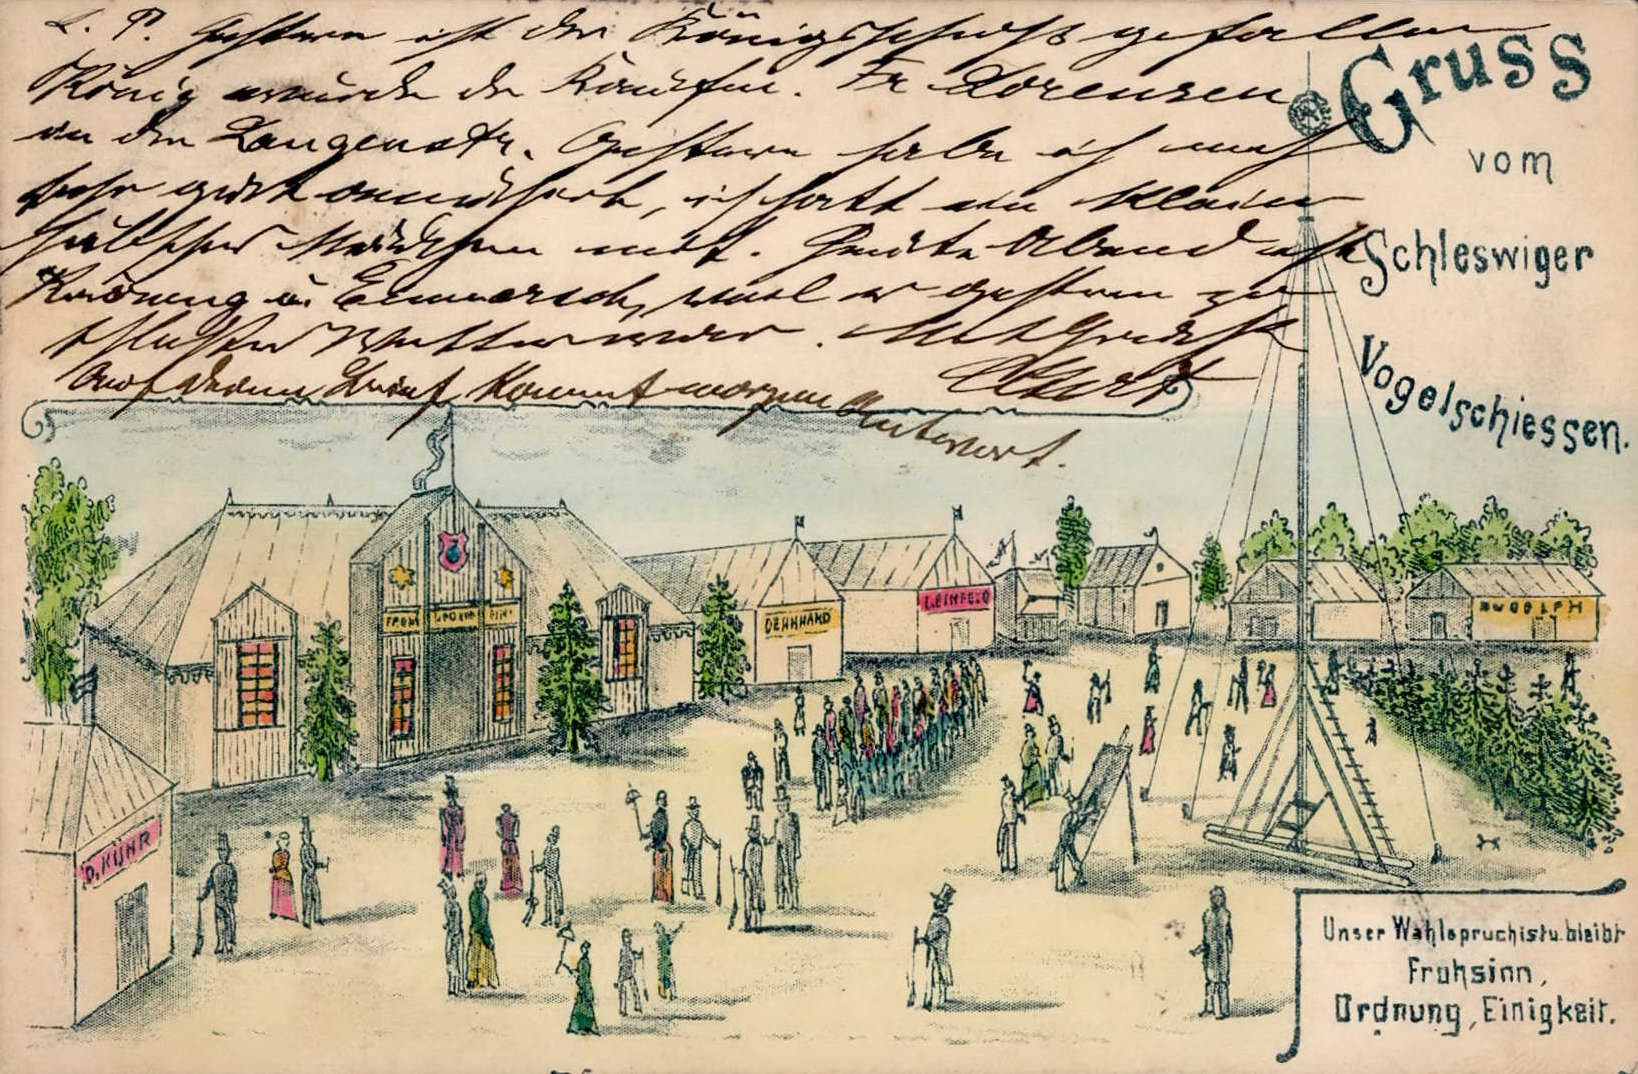 L. P. Gestern ist der Königsschuß gefallen
König wurde der Fr. Lorensen
in der Langenstr. Gestern habe ich mich
sehr gut amüsiert, ich hatte ein kleines
hübsches Mädchen mit. Heute Abend ist
Krönung u. weil es gestern zu
schlechtes Wetter war. Mit Gruß
Kurt
Auf deinen Brief kommt morgen Antwort.
Gruss
vom
Schleswiger
Vogelschiessen.
FROH
BERNHARD
LEINFELD
RUDOLPH
D. KÜHR
Unser Wahlspruch ist u. bleibt
Frohsinn,
Ordnung, Einigkeit.